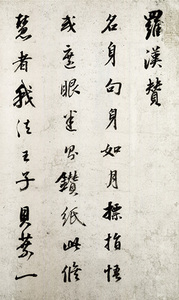 羅漢贊
名身句身如月標指悟
或遮眼迷即鑽紙此修
慧者我法王子貝葉一